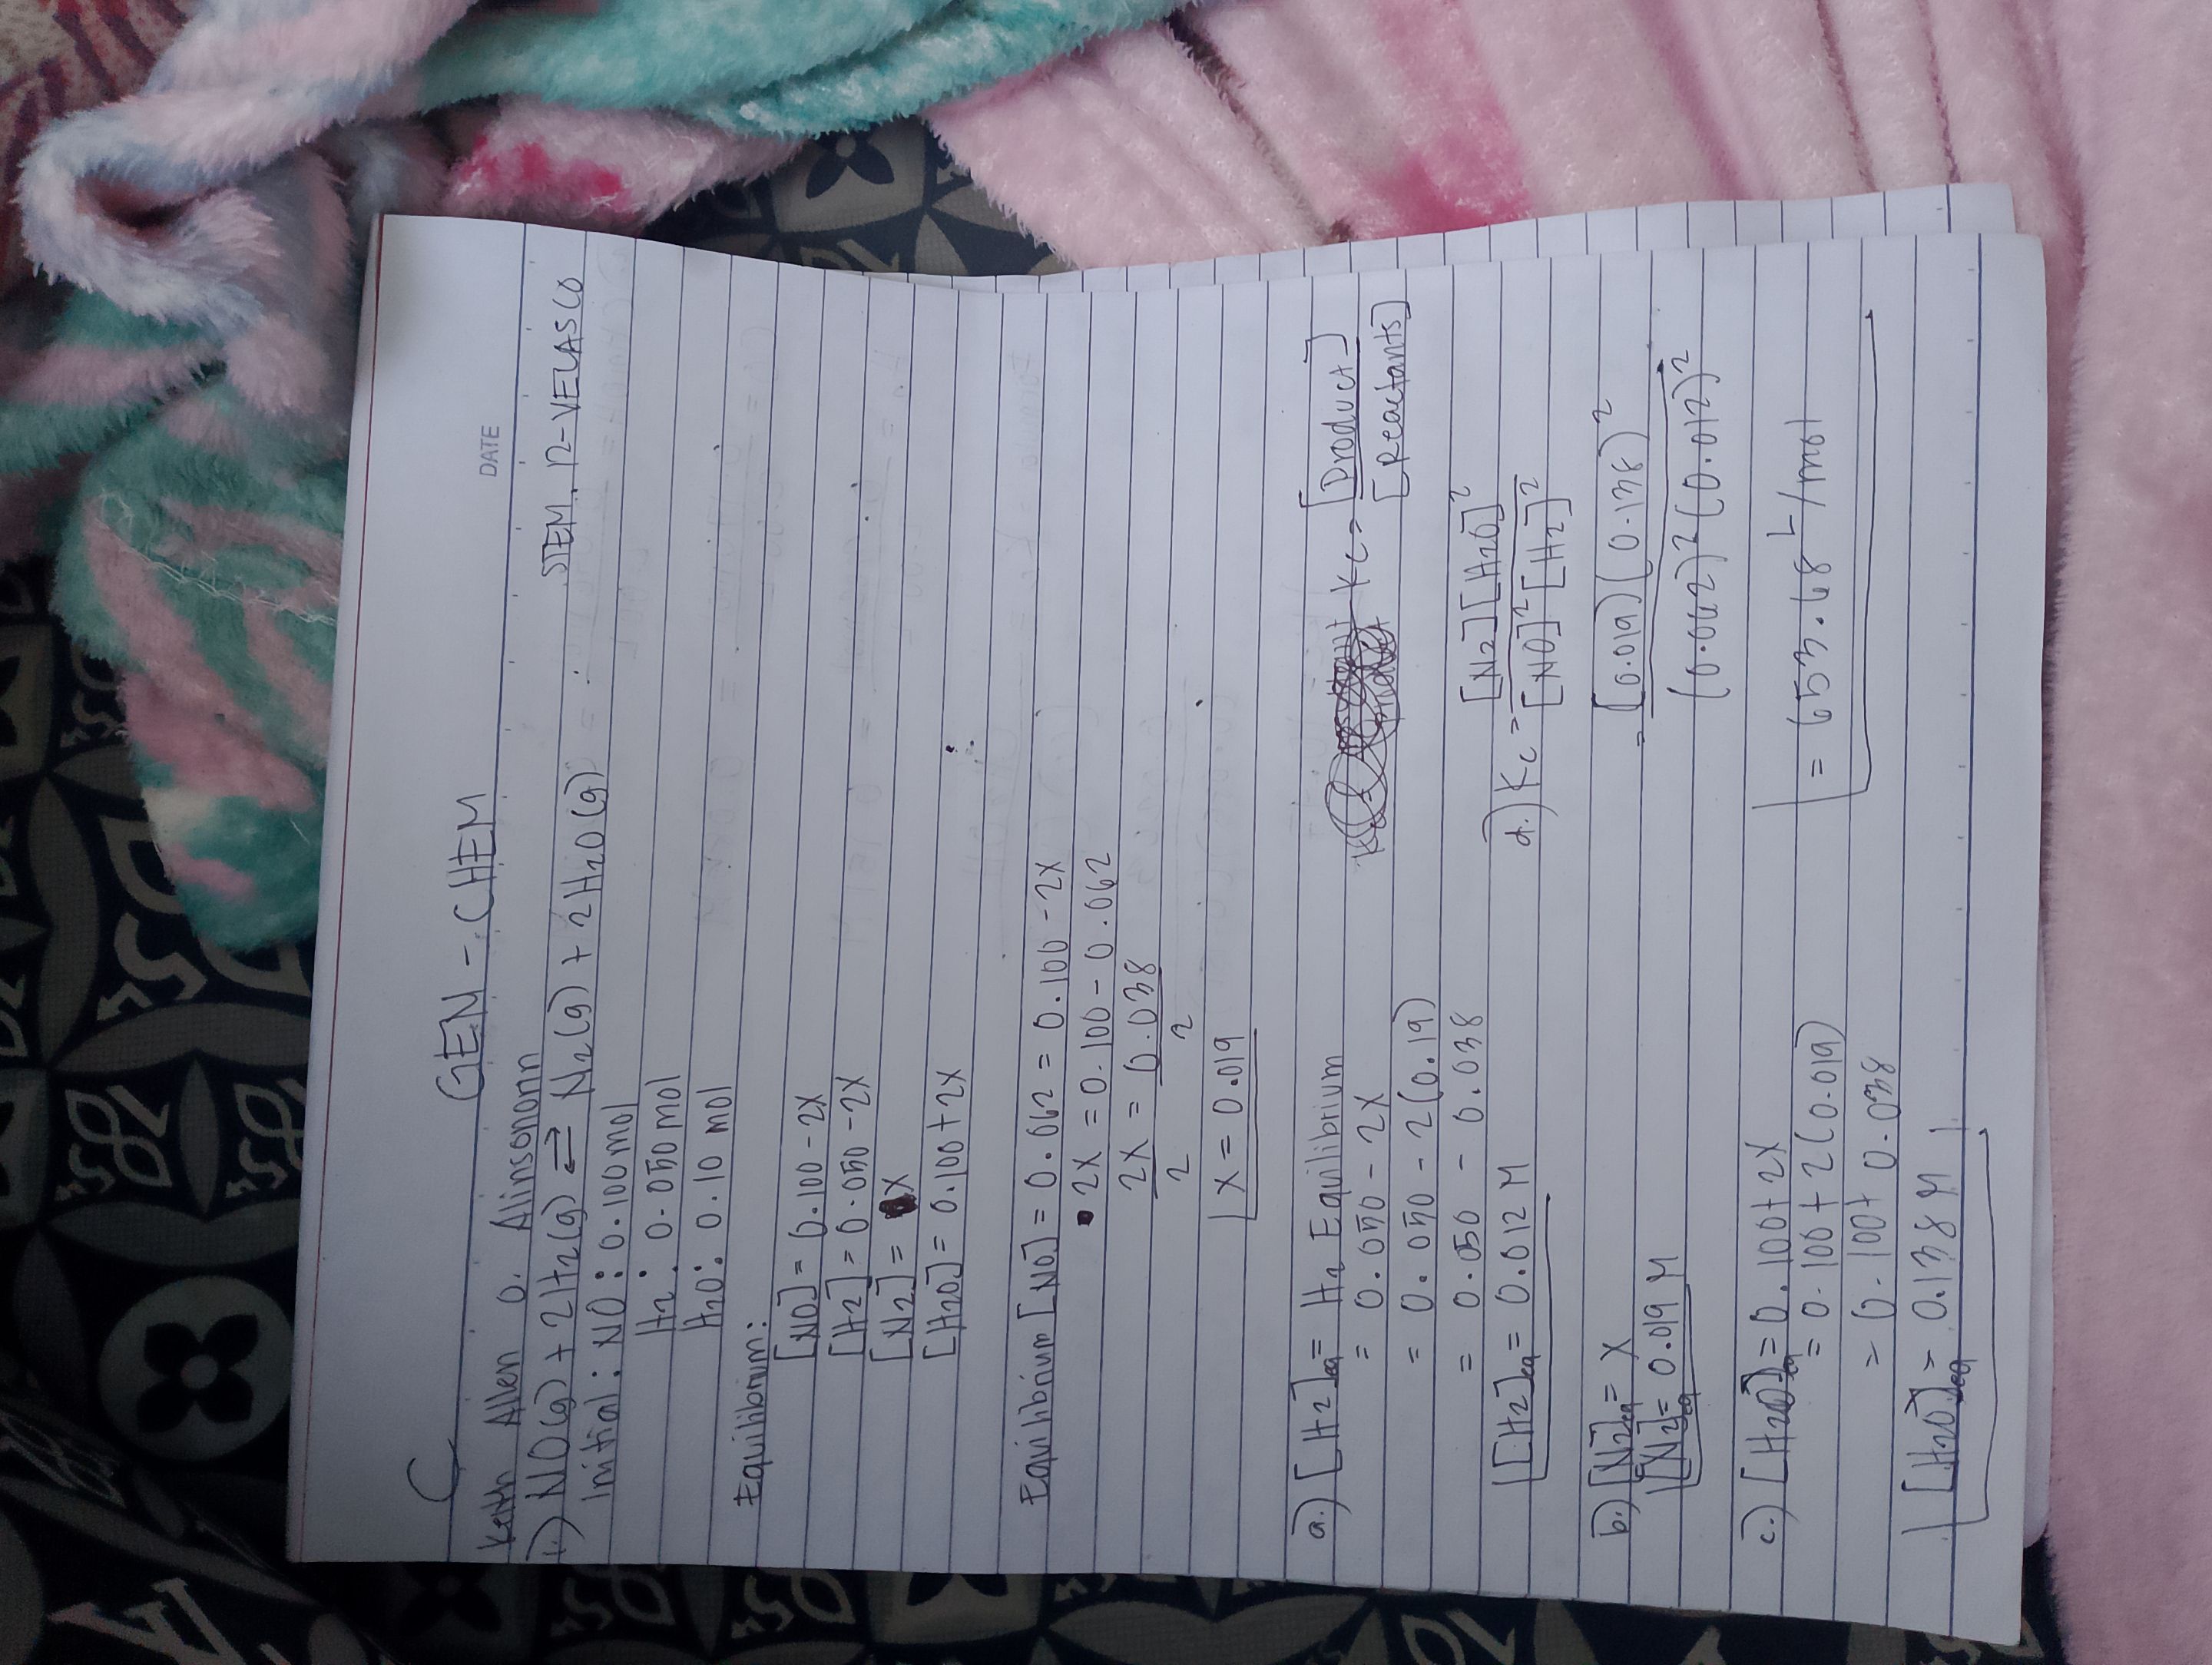 C
GEN-CHEM
DATE
Keith Allen O. Alinsonorin
STEM 12-VELASCO
1.) NO(g) + 2H2(g) ⇌ N2(g) + 2H2O(g)
Initial: NO: 0.100 mol
H2: 0.050 mol
H2O: 0.10 mol
Equilibrium:
[NO] = 0.100-2X
[H2] = 0.050-2X
[N2] = X
[H2O] = 0.100+2X
Equilibrium [NO] = 0.062 = 0.100-2X
2X = 0.100-0.062
2X = 0.038
2 2
X = 0.019
a.) [H2]eq = H2 Equilibrium
= 0.050-2X
= 0.050-2(0.19)
= 0.050 - 0.038
[H2]eq = 0.012 M
b.) [N2]eq = X
[N2]eq = 0.019 M
c.) [H2O]eq = 0.100+2X
= 0.100+2(0.019)
= 0.100+0.038
[H2O]eq = 0.138 M
Kc = [Product]
[Reactants]
d.) Kc = [N2][H2O]²
[NO]²[H2]²
= (0.019)(0.138)²
(0.062)²(0.012)²
= 653.68 L/mol